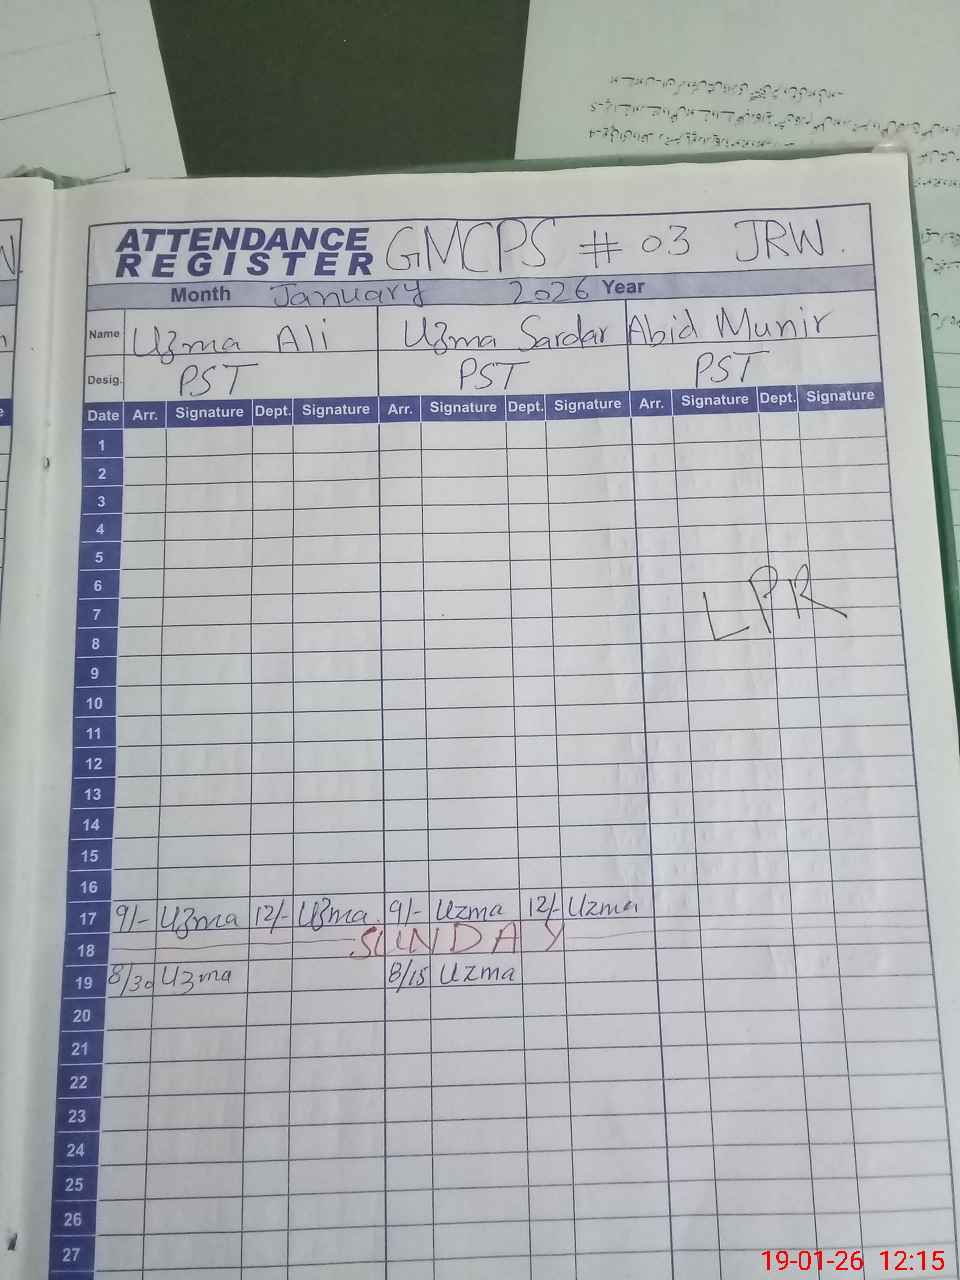 ATTENDANCE REGISTER GMCPS # 03 JRW.
Month January 2026 Year
Name Uzma Ali Uzma Sardar Abid Munir
Desig. PST PST PST
Date Arr. Signature Dept. Signature Arr. Signature Dept. Signature Arr. Signature Dept. Signature
1
2
3
4
5
6
LPR
7
8
9
10
11
12
13
14
15
16
17 9/- Uzma 12/- Uzma. 9/- Uzma 12/- Uzma
18 SUNDAY
19 8/30 Uzma 8/15 Uzma
20
21
22
23
24
25
26
27
19-01-26 12:15